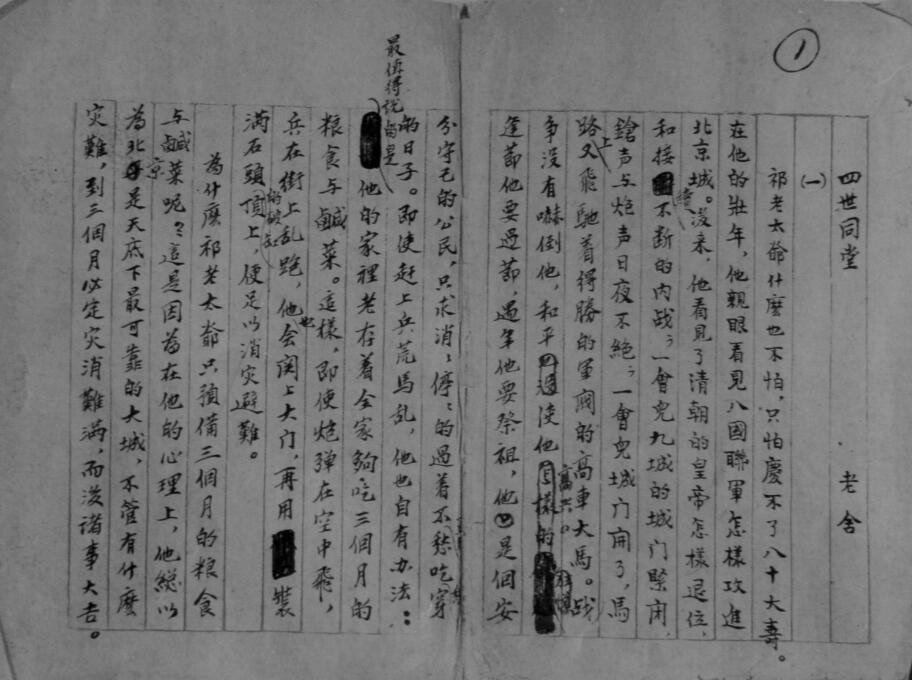 1
四世同堂 老舍
(一)
祁老太爺什麽也不怕，只怕慶不了八十大壽。
在他的壯年，他親眼看見八國聯軍怎樣攻進
北京城。後來，他看見了清朝的皇帝怎樣退位，
和接續不断的内战；一會兒九城的城门緊闭，
鎗声与炮声日夜不絕；一會兒城门開了，馬
路上又飛馳着得勝的軍閥的高車大馬。战
争没有嚇倒他，和平使他高兴。
逢節他要過節，過年他要祭祖，他是個安
分守己的公民，只求消消停停的過着不愁吃穿
的日子。即使赶上兵荒馬乱，他也自有办法：
最值得說的是他的家裡老存着全家夠吃三個月的
粮食与鹹菜。這樣，即使炮弹在空中飛，
兵在街上乱跑，他也会関上大门，再用装
满石頭的破缸頂上，便足以消灾避難。
為什麽祁老太爺只預備三個月的粮食
与鹹菜呢？這是因為在他的心理上，他總以
為北京是天底下最可靠的大城，不管有什麽
灾難，到三個月必定灾消難满，而後諸事大吉。